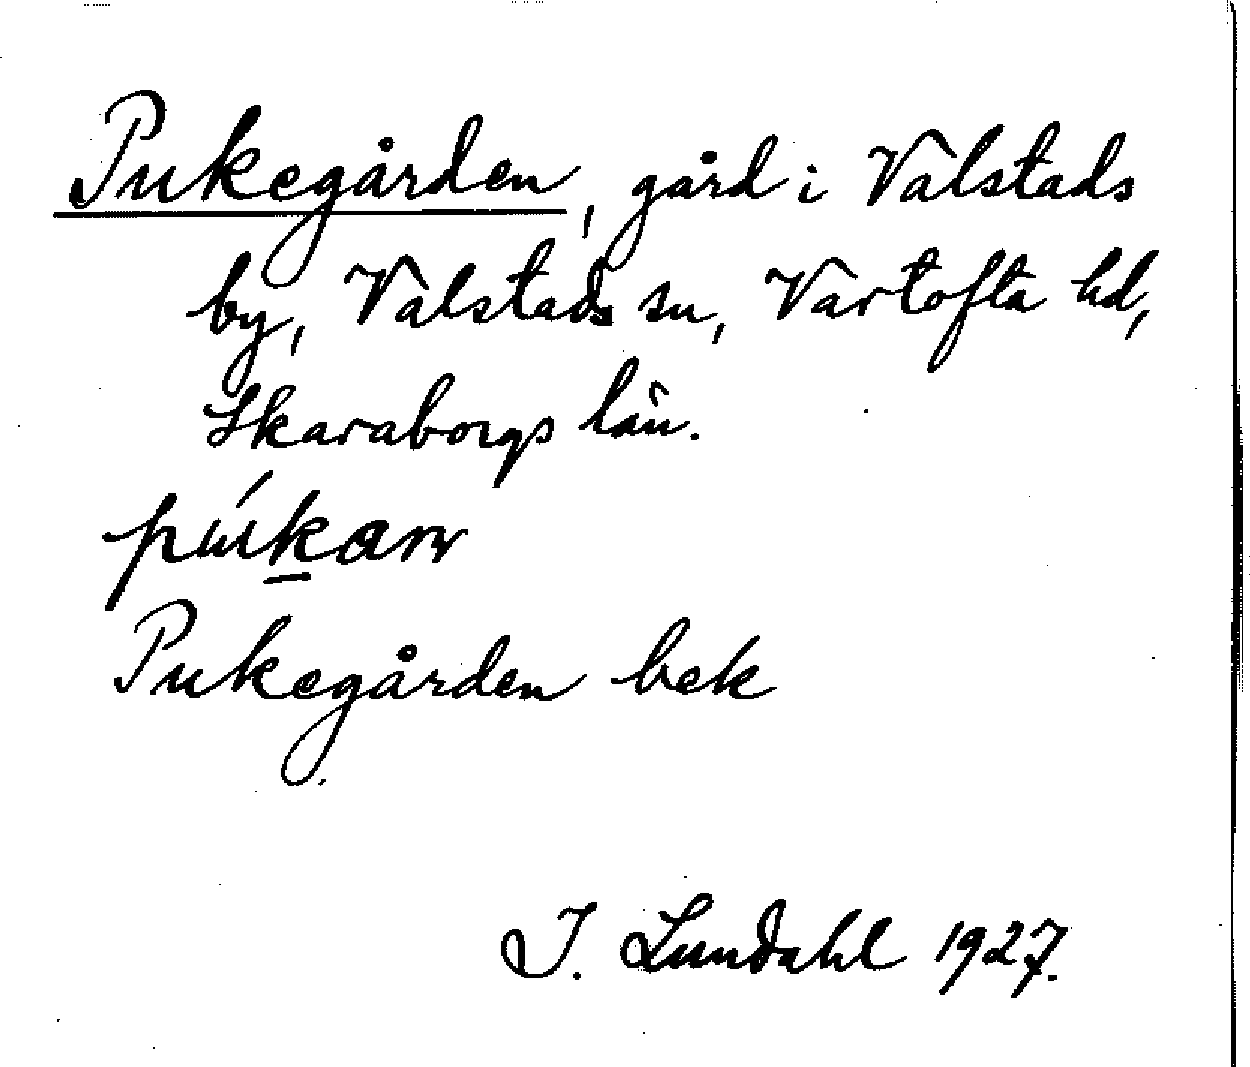 Pukegården, gård i Valstads
by, Valstads sn, Vartofta hd,
Skaraborgs län.
Pukegården bek
I. Lundahl 1927.